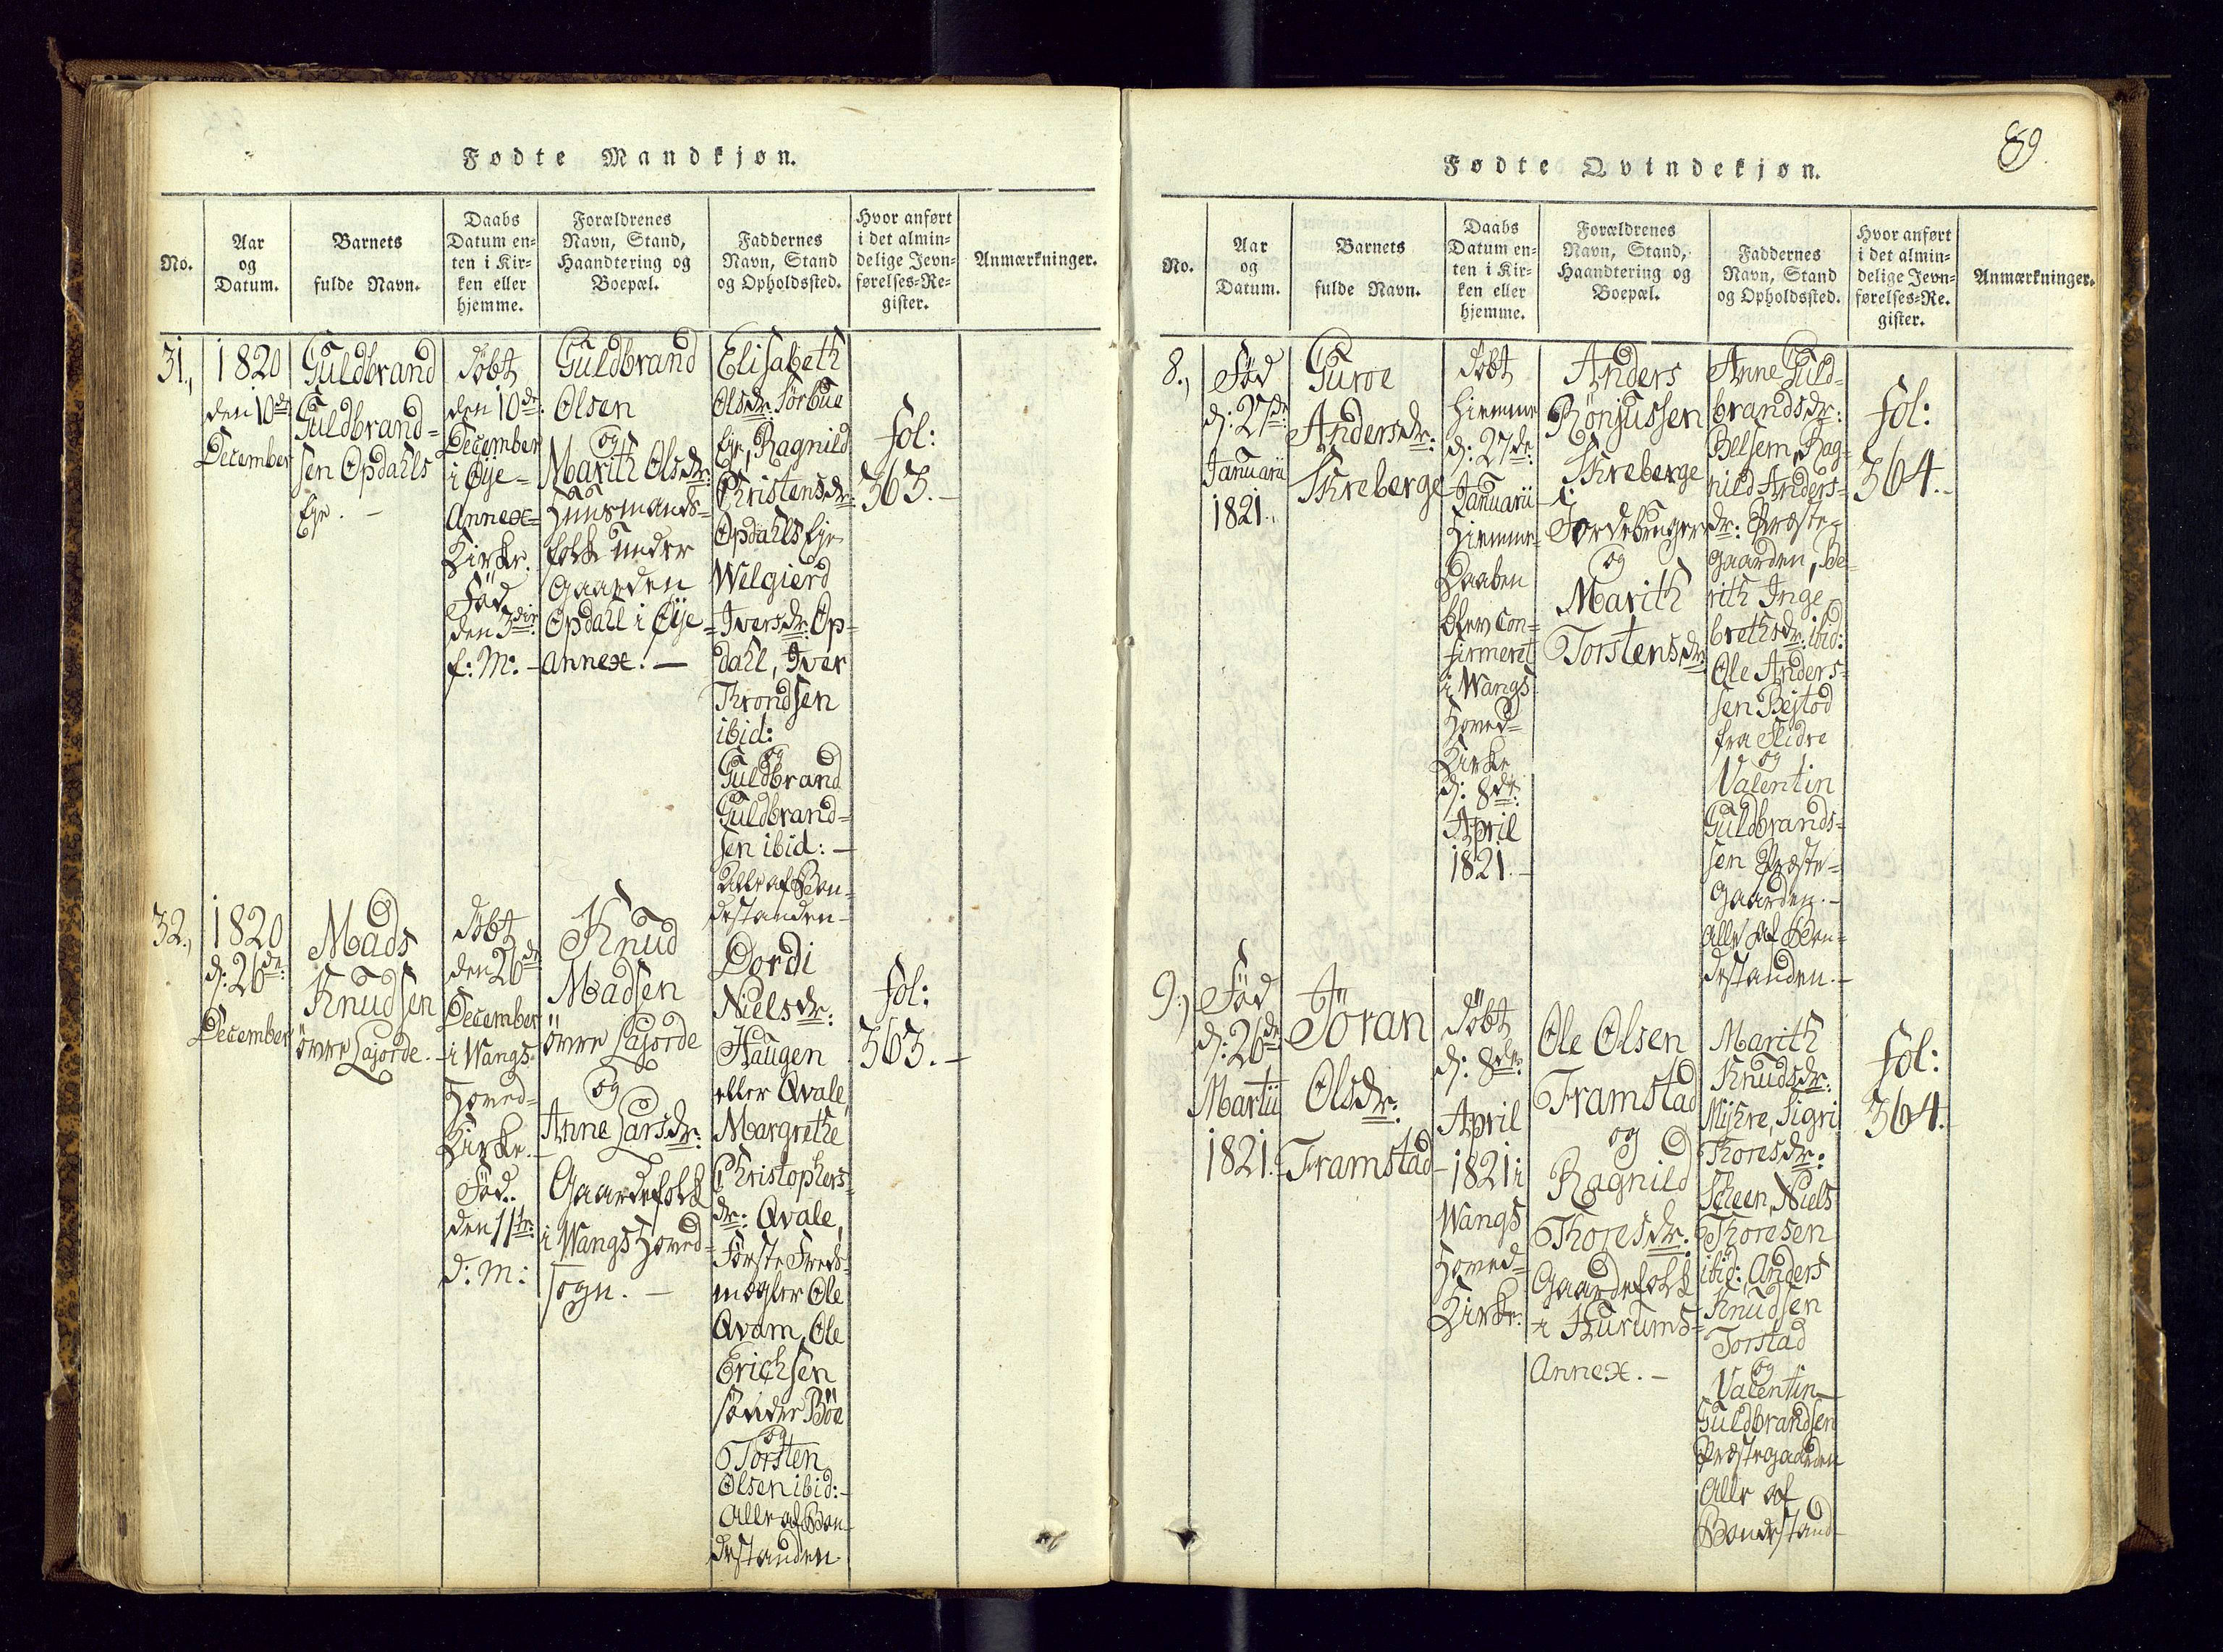 Fødte Mandkjøn.
No.
Aar
og
Datum.
Barnets
fulde Navn.
Daabs
Datum en-
ten i Kir-
ken eller
hjemme.
Forældrenes
Navn, Stand,
Haandtering og
Boepæl.
Faddernes
Navn, Stand
og Opholdssted.
Hvor anført
i det almin-
delige Jevn-
førelses-Re-
gister.
Anmærkninger.
31.,
1820
den 10de
December
Guldbrand
Guldbrand=
sen Opdahls
Eje. -
døbt
den 10de:
December
i Øije=
Annex=
Kirke.
Fød
den 3die
f: M: -
Guldbrand
Olsen
og
Marith Olsdr:
Huusmands=
folk under
Gaarden
Opdahl i Øije=
annex. -
Elisabeth
Olsdr: Sörbue
Eje, Ragnild
Christensdr:
Opdahls Eje
Welgierd
Iversdr: Op=
dahl, Iver
Throndsen
ibid:
og
Guldbrand
Guldbrand=
sen ibid: -
Alle af Bon=
destanden -
fol:
363. -
32.,
1820
d: 26de:
December
Mads
Knudsen
övre Lajorde. -
døbt
den 26de
December
i Wangs
Hoved=
Kirke. -
Fød..
den 11te:
d: M:
Knud
Madsen
övre Lajorde
og
Anne Larsdr:
Gaardefolk
i Wangs Hoved=
sogn. -
Dordi
Nielsdr:
Haugen
eller Qvale,
Margrethe
Christophers=
dr: Qvale,
Første Freds=
mægler Ole
Qvam, Ole
Erichsen
sönder Böe
og
Torsten
Olsen ibid: -
Alle af Bon=
destanden.
fol:
363. -
89.
Fødte Qvindekjøn.
No.
Aar
og
Datum.
Barnets
fulde Navn.
Daabs
Datum en-
ten i Kir-
ken eller
hjemme.
Forældrenes
Navn, Stand,
Haandtering og
Boepæl.
Faddernes
Navn, Stand
og Opholdssted.
Hvor anført
i det almin-
delige Jevn-
førelses-Re-
gister.
Anmærkninger.
8.,
Fød
d: 27de:
Januarii
1821.
Guroe
Andersdr:
Skreberge
døbt
hiemme
d: 27de:
Januarii
Hiemme=
Daaben
blev con=
firmeret
i Wangs
Hoved=
Kirke
d: 8de:
April
1821. -
Anders
Rönjussen
Skreberge
i
Jordebruger
og
Marith
Torstensdr:
Anne Guld=
brandsdr:
Belsem, Rag=
nild Anders=
dr: Præste=
gaarden, Be=
rith Inge=
brethsdr: ibid:
Ole Anders=
sen Bejtod
fra Slidre
og
Valentin
Guldbrands=
sen Præste=
gaarden. -
Alle af Bon=
destanden. -
fol:
364. -
9.,
Fød
d: 26de
Martii
1821.
Jöran
Olsdr:
Framstad
døbt
d: 8de:
April
1821 i
Wangs
Hoved=
Kirke.
Ole Olsen
Framstad
og
Ragnild
Thoresdr:
Gaardefolk
i Hurums=
Annex. -
Marith
Knudsdr:
Mykre, Sigri
Thoresdr:
Scheen, Niels
Thoresen
ibid: Anders
Knudsen
Torstad
og
Valentin
Guldbrandsen
Præstegaarden
Alle af
Bondestand-
fol:
364.